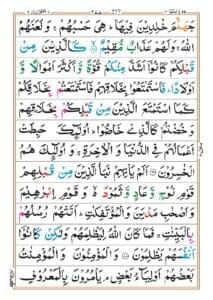 جَهَنَّمَ خٰلِدِيْنَ فِيْهَا ؕ هِيَ حَسْبُهُمْ ۚ وَلَعَنَهُمُ
اللّٰهُ ۚ وَلَهُمْ عَذَابٌ مُّقِيْمٌ ۙ كَالَّذِيْنَ مِنْ
قَبْلِكُمْ كَانُوْۤا اَشَدَّ مِنْكُمْ قُوَّةً وَّاَكْثَرَ اَمْوَالًا وَّ
اَوْلَادًا ؕ فَاسْتَمْتَعُوْا بِخَلَاقِهِمْ فَاسْتَمْتَعْتُمْ بِخَلَاقِكُمْ
كَمَا اسْتَمْتَعَ الَّذِيْنَ مِنْ قَبْلِكُمْ بِخَلَاقِهِمْ
وَخُضْتُمْ كَالَّذِيْ خَاضُوْا ؕ اُولٰٓئِكَ حَبِطَتْ
اَعْمَالُهُمْ فِي الدُّنْيَا وَالْاٰخِرَةِ ۚ وَاُولٰٓئِكَ هُمُ
الْخٰسِرُوْنَ اَلَمْ يَاْتِهِمْ نَبَاُ الَّذِيْنَ مِنْ قَبْلِهِمْ
قَوْمِ نُوْحٍ وَّعَادٍ وَّثَمُوْدَ وَقَوْمِ اِبْرٰهِيْمَ
وَاَصْحٰبِ مَدْيَنَ وَالْمُؤْتَفِكٰتِ ؕ اَتَتْهُمْ رُسُلُهُمْ
بِالْبَيِّنٰتِ ۚ فَمَا كَانَ اللّٰهُ لِيَظْلِمَهُمْ وَلٰكِنْ كَانُوْۤا
اَنْفُسَهُمْ يَظْلِمُوْنَ وَالْمُؤْمِنُوْنَ وَالْمُؤْمِنٰتُ
بَعْضُهُمْ اَوْلِيَآءُ بَعْضٍ ۘ يَاْمُرُوْنَ بِالْمَعْرُوْفِ